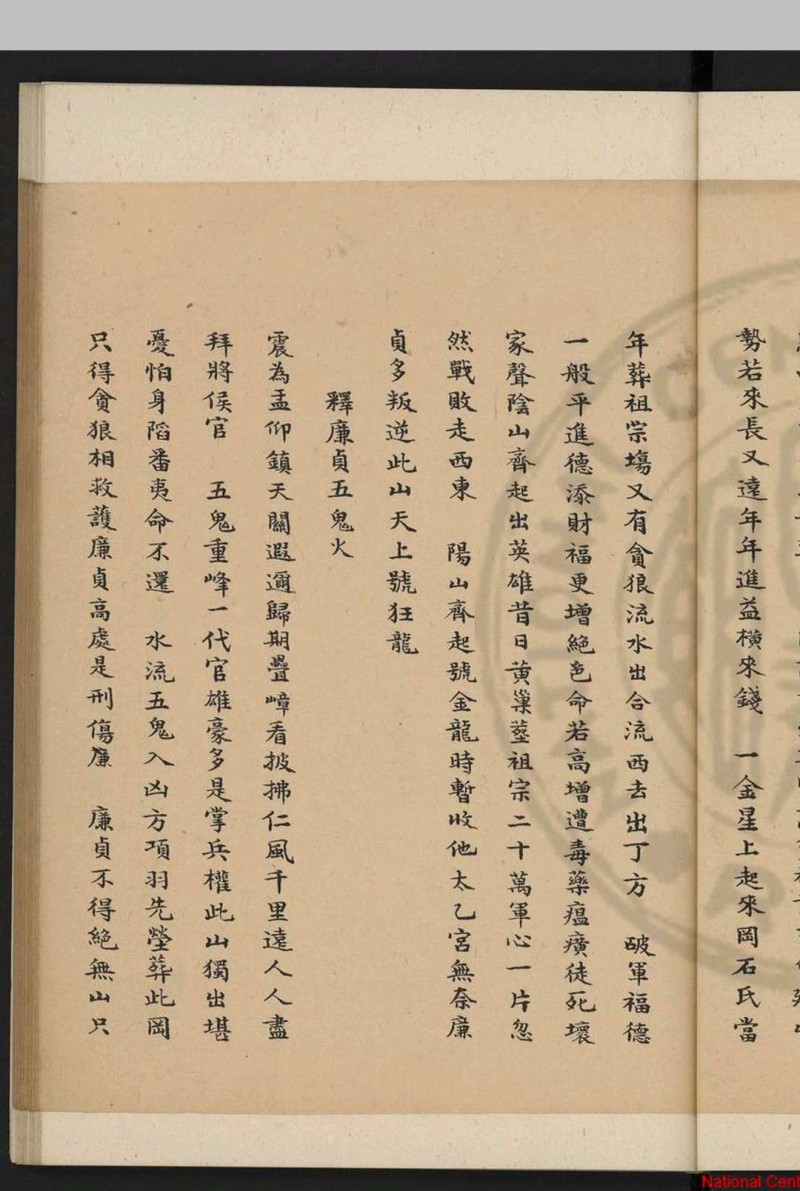 勢若來長又遠年年進益橫來錢　一金星上起來岡石氏當
年葬祖宗塲又有貪狼流水出合流西去出丁方　破軍福德
一般平進德添財福更增絕色命若高增遭毒藥瘟癀徒死壞
家聲陰山齊起出英雄昔日黃巢塟祖宗二十萬軍心一片忽
然戰敗走西東　陽山齊起號金龍時暫收他太乙宮無奈廉
貞多叛逆此山天上號狂龍
釋廉貞五鬼火
震為孟仰鎮天關遐邇歸期疊嶂看披拂仁風千里遠人人盡
拜將侯官　五鬼重峰一代官雄豪多是掌兵權此山獨出堪
憂怕身陷番夷命不還　水流五鬼入凶方項羽先塋葬此岡
只得貪狼相救護廉貞高處是刑傷廉　廉貞不得絕無山只
National Cent